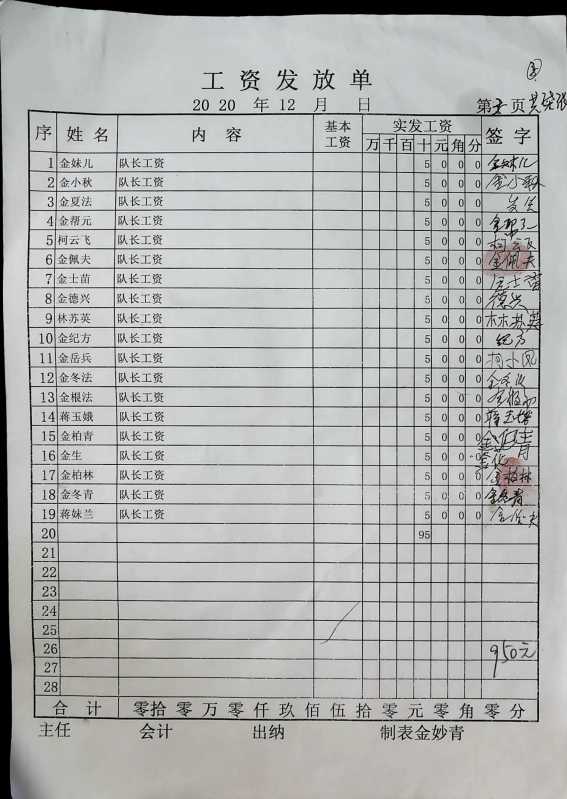 工资发放单
2020 年 12 月 日 第 页
序 姓名 内容 基本工资 实发工资 签字
万 千 百 十 元 角 分
1 金妹儿 队长工资 5 0 0 0 金妹儿
2 金小秋 队长工资 5 0 0 0 金小秋
3 金夏法 队长工资 5 0 0 0
4 金帮元 队长工资 5 0 0 0 金帮元
5 柯云飞 队长工资 5 0 0 0 柯云飞
6 金佩夫 队长工资 5 0 0 0 金佩夫
7 金士苗 队长工资 5 0 0 0 金士苗
8 金德兴 队长工资 5 0 0 0 德兴
9 林苏英 队长工资 5 0 0 0 林苏英
10 金纪方 队长工资 5 0 0 0 纪方
11 金岳兵 队长工资 5 0 0 0 柯小凤
12 金冬法 队长工资 5 0 0 0 金冬法
13 金根法 队长工资 5 0 0 0
14 蒋玉娥 队长工资 5 0 0 0 蒋玉娥
15 金柏青 队长工资 5 0 0 0 金柏青
16 金生 队长工资 5 0 0 0
17 金柏林 队长工资 5 0 0 0 金柏林
18 金冬青 队长工资 5 0 0 0 金冬青
19 蒋妹兰 队长工资 5 0 0 0
20 95
21
22
23
24
25
26 950元
27
28
合计 零拾零万零仟玖佰伍拾零元零角零分
主任 会计 出纳 制表金妙青